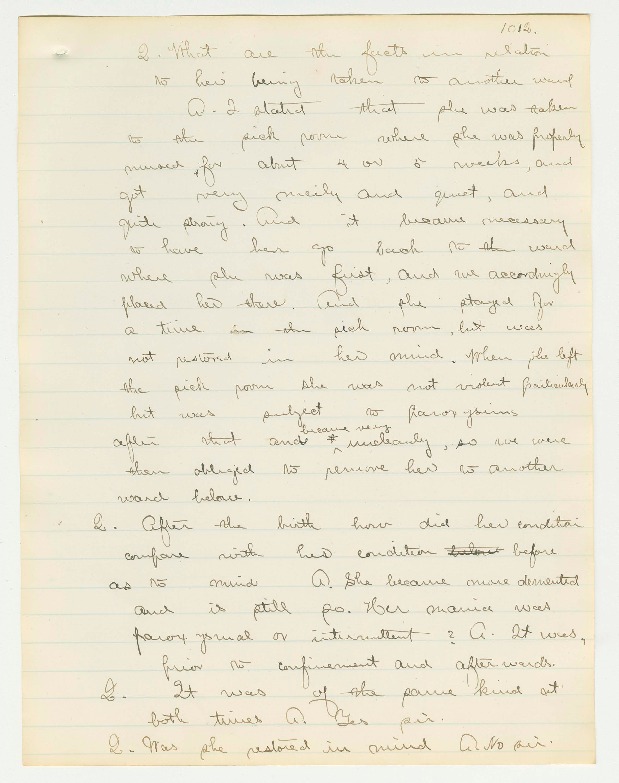 1012.
Q. What are the facts in relation
to her being taken to another ward
A. I stated that she was taken
to the sick room where she was properly
nursed, for about 4 or 5 weeks, and
got very nicely and quiet, and
quite strong. And it became necessary
to have her go back to the ward
where she was first, and we accordingly
placed her there. And she stayed for
a time in the sick room, but was
not restored in her mind. When she left
the sick room she was not violent particularly
but was subject to paroxysims
became very
after that and uncleanly, so we were
then obliged to remove her to another
ward below.
Q. After the birth how did her condition
compare with her condition before
as to mind A. She became more demented
and is still so. Her mania was
paroxysmal or intermittent? A. It was,
prior to confinement and afterwards.
Q. It was of the same kind at
both times A. Yes sir.
Q. Was she restored in mind A. No sir.